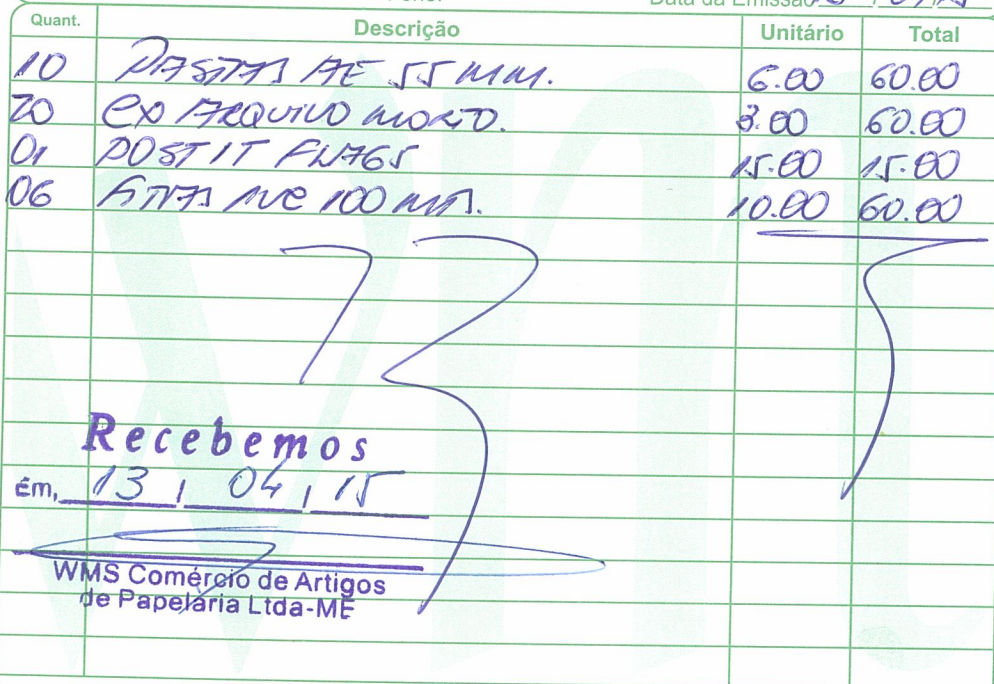 Data da Emissão
Quant. Descrição Unitário Total
10 PASTAS AE 55 MM. 6.00 60.00
20 CX ARQUIVO MORTO. 3.00 60.00
01 POST IT 15.00 15.00
06 FITAS 100 10.00 60.00
Recebemos
Em, 13 / 04 / 15
WMS Comércio de Artigos
de Papelaria Ltda-ME